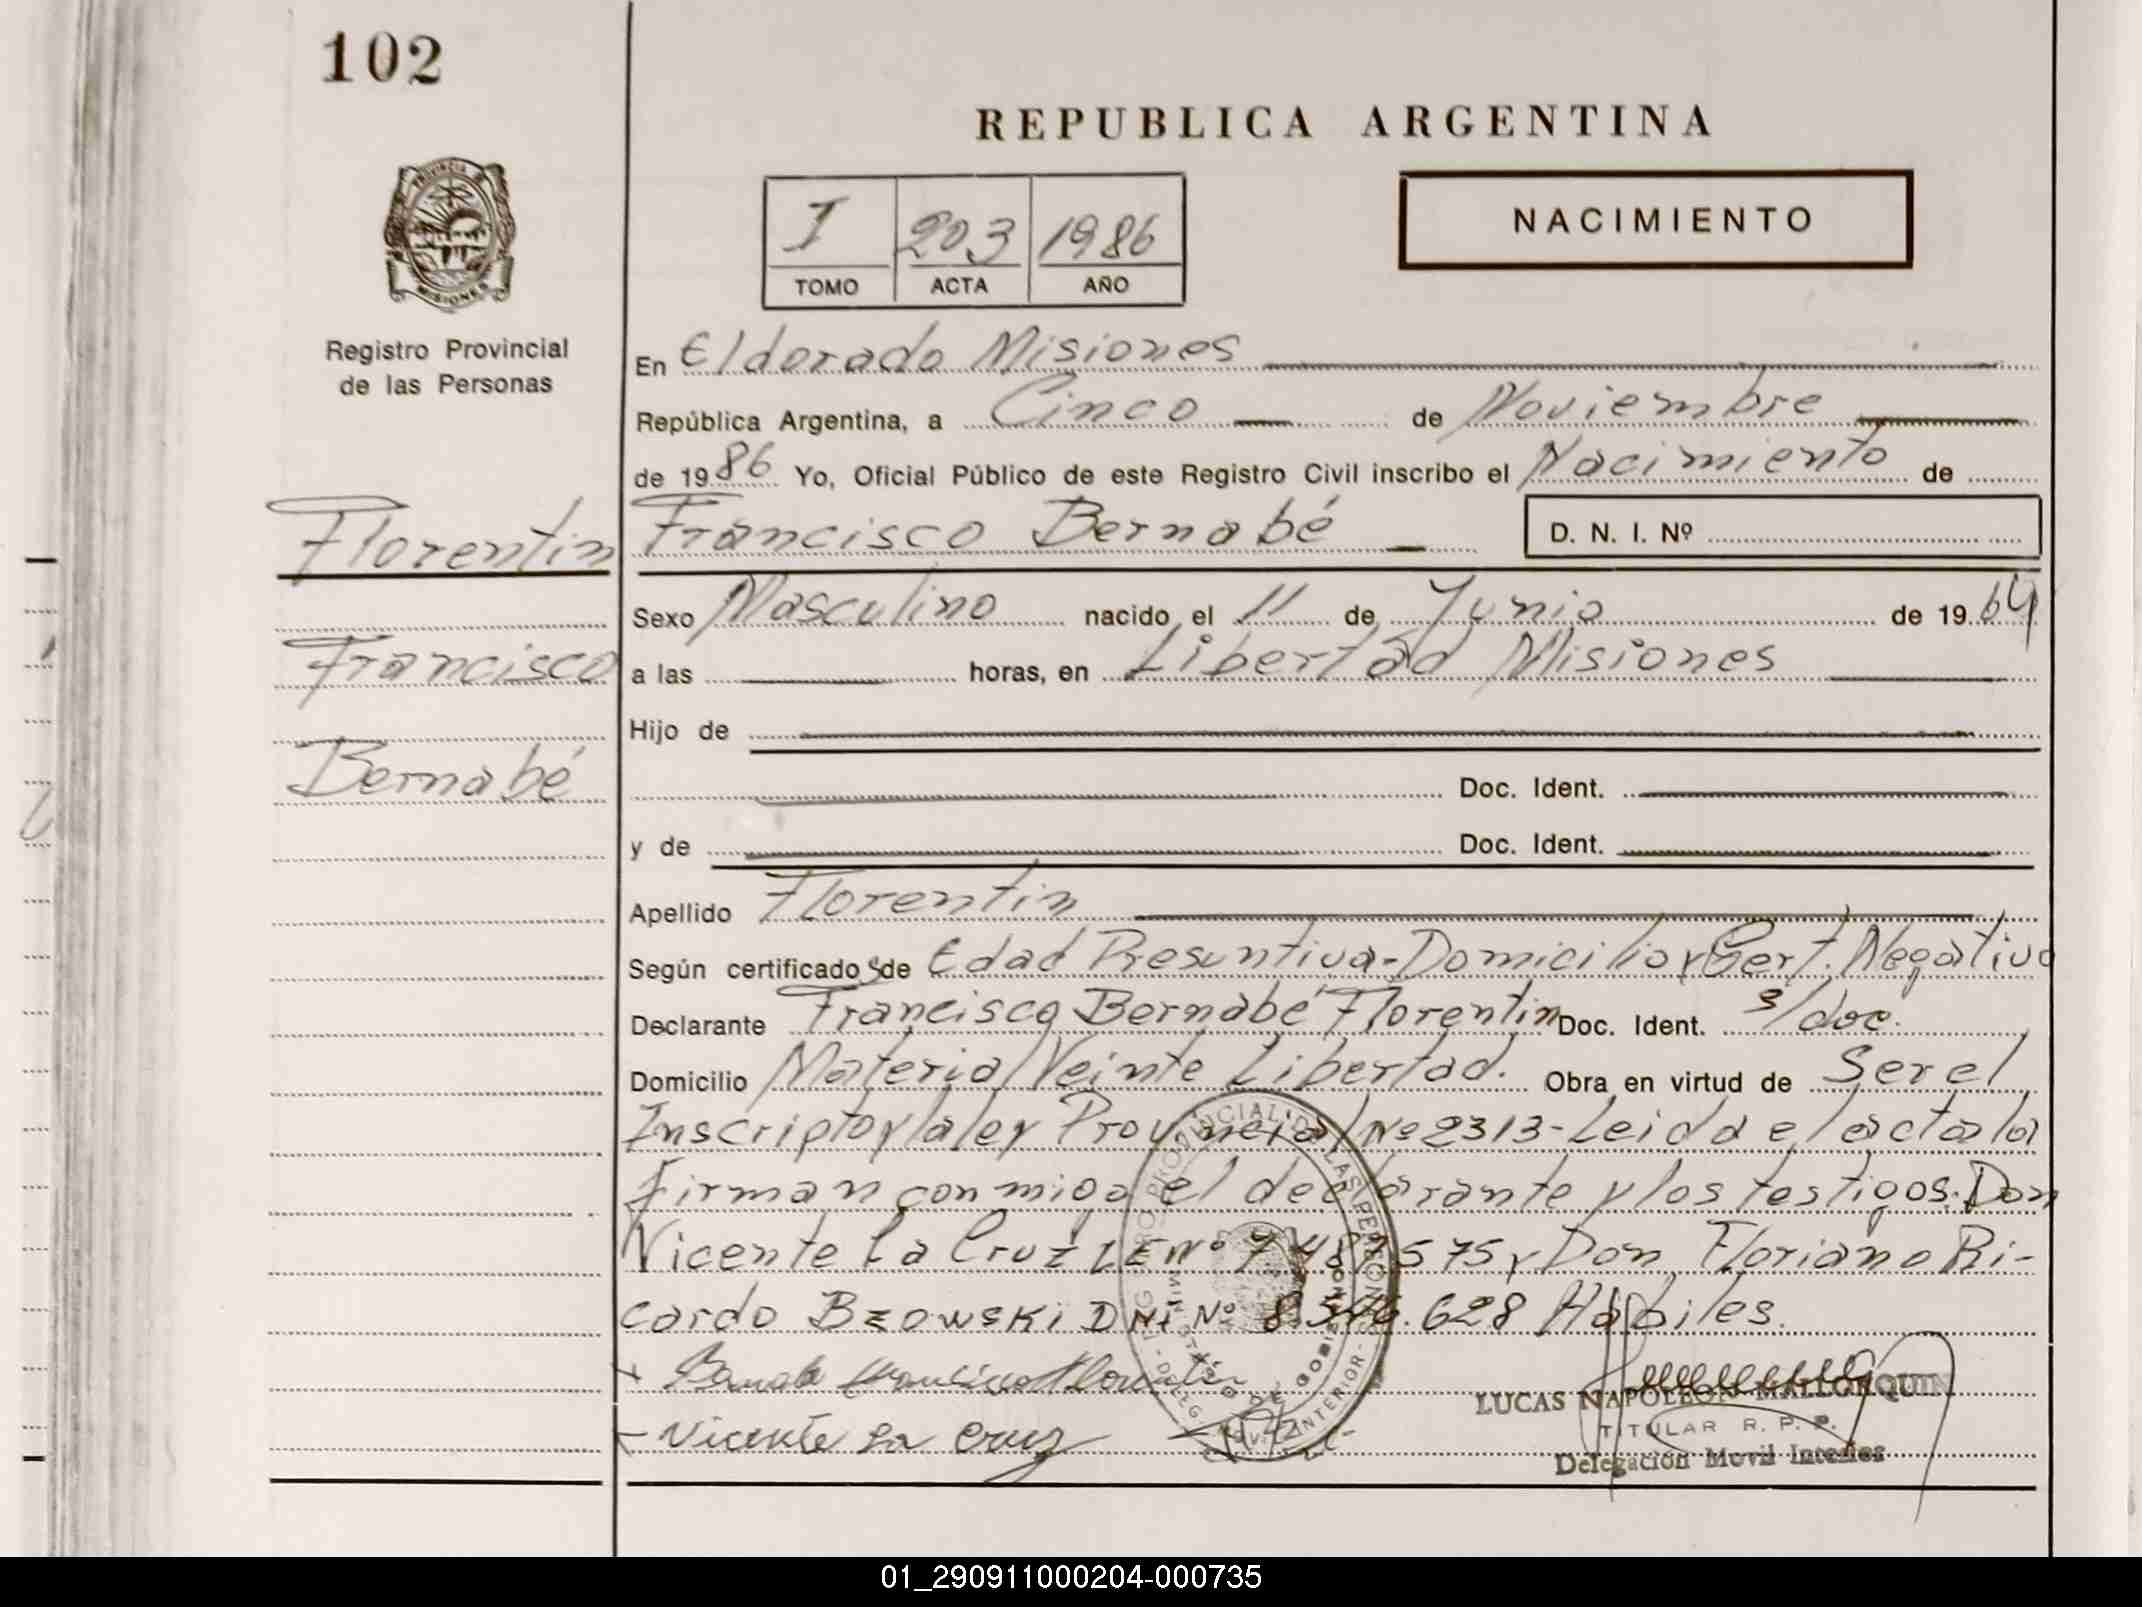 102
REPUBLICA ARGENTINA
PROVINCIA DE
MISIONES
I 203 1986
TOMO ACTA AÑO
NACIMIENTO
Registro Provincial
de las Personas
En Eldorado Misiones
República Argentina, a Cinco de Noviembre
de 1986 Yo, Oficial Público de este Registro Civil inscribo el Nacimiento de
Florentin Francisco Bernabé D. N. I. Nº
Sexo Masculino nacido el 11 de Junio de 1964
Francisco
a las horas, en Libertad Misiones
Hijo de
Bernabé
Doc. Ident.
y de Doc. Ident.
Apellido Florentin
Según certificado s de Edad Presuntiva-Domicilio y Cert. Negativo
Declarante Francisco Bernabé Florentin Doc. Ident. s/doc.
Domicilio Material Veinte Libertad. Obra en virtud de Ser el
Inscripto y la ley Provincial Nº 2313-Leida el acta la
Firman conmigo el declarante y los testigos. Don
Vicente La Cruz LE Nº 7.487.575 y Don Floriano Ri-
cardo Bzowski DNI Nº 8.546.628 Habiles.
Vicente La Cruz
LUCAS NAPOLEON MALLORQUIN
TITULAR R. P. P.
Delegación Movil Interior
01_290911000204-000735